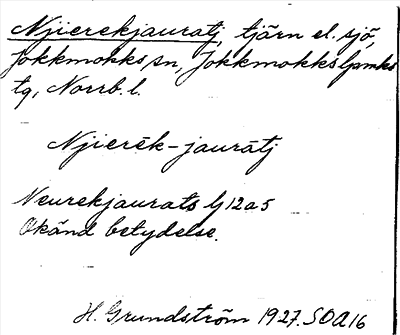 Njierekjauratj, tjärn el. sjö,
Jokkmokks sn, Jokkmokks lpmks
tg, Norrb. l.
Njierēk-jaurātj
Neurekjaurats lj 12a5
Okänd betydelse.
H. Grundström 1927. SOA 16